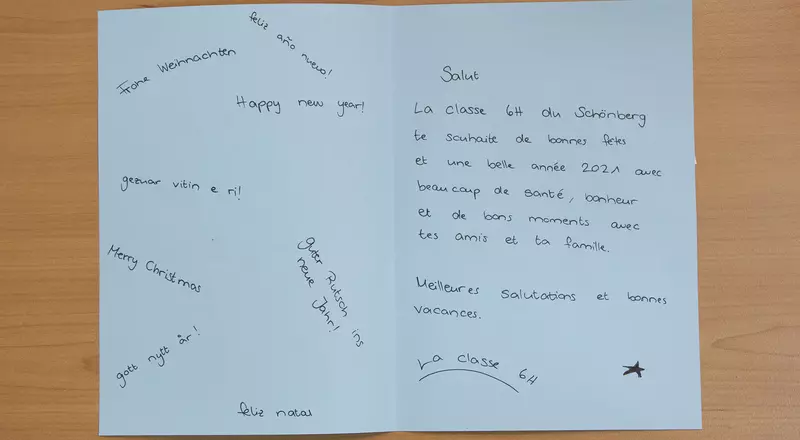 feliz año nuevo!
Frohe Weihnachten
Happy new year!
gezuar vitin e ri!
Merry Christmas
guter Rutsch ins
neue Jahr!
gott nytt år!
feliz natal
Salut
La classe 6H du Schönberg
te souhaite de bonnes fêtes
et une belle année 2021 avec
beaucoup de santé, bonheur
et de bons moments avec
tes amis et ta famille.
Meilleures salutations et bonnes
vacances.
La classe 6H